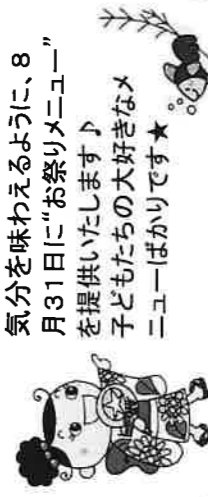 気分を味わえるように、8
月31日に“お祭りメニュー”
を提供いたします♪
子どもたちの大好きなメ
ニューばかりです★